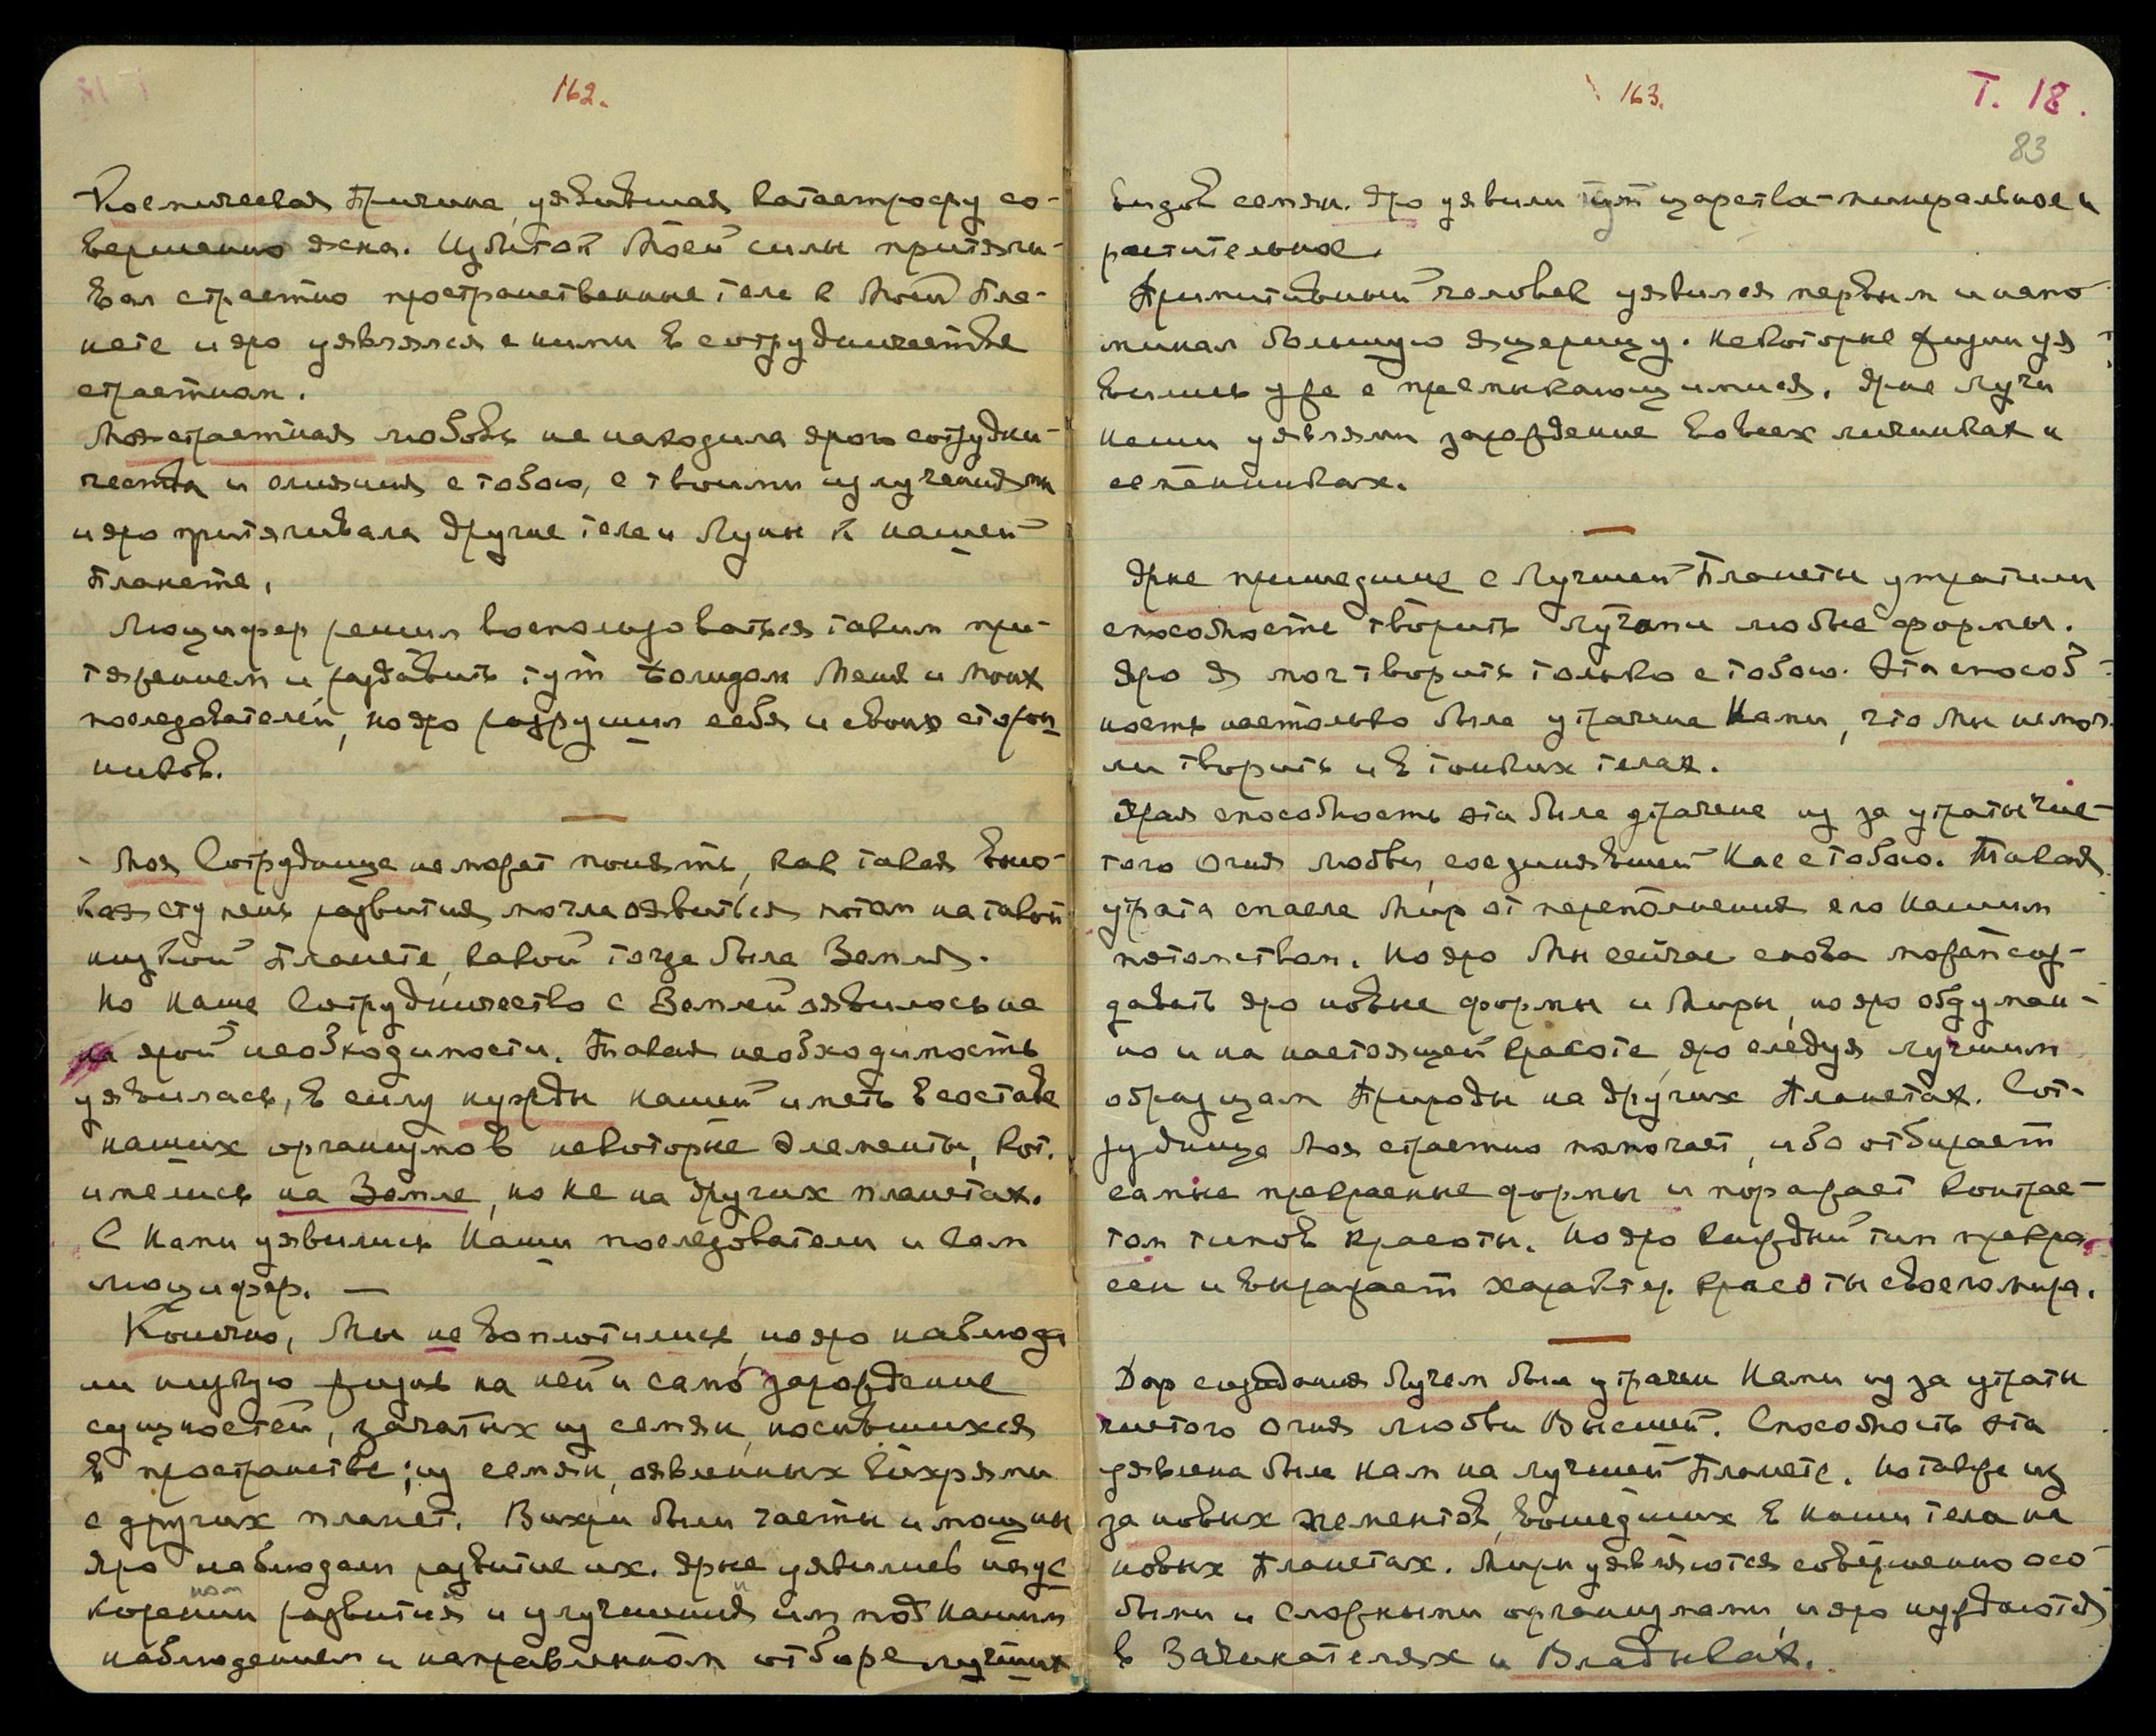 162.
Космическая Причина, уявившая катастрофу со-
вершенно ясна. Избыток Моей силы притяги-
вал страстно пространственные тела к Моей Пла-
нете и яро уявлялся с ними в сотрудничестве
страстном.
Моя страстная любовь не находила ярого сотрудни-
чества и слияния с тобою, с твоими излучениями
и яро притягивала другие тела и Луны к нашей
Планете.
Люцифер решил воспользоваться таким при-
тяжением и раздавить тут болидом Меня и Моих
последователей, но яро разрушил себя и своих сторон
ников.
Моя Сотрудница не может понять, как такая высо-
кая ступень развития могла оявиться потом на такой
низкой Планете, какой тогда была Земля.
Но Наше Сотрудничество с Землей оявилось не
на ярой необходимости. Такая необходимость
уявилась, в силу нужды нашей иметь в составе
наших организмов некоторые элементы, кот.
имелись на Земле, но не на других планетах.
С Нами уявились Наши последователи и сам
Люцифер. —
Конечно, Мы не воплотились, но яро наблюда
ли низкую жизнь на ней и само зарождение
сущностей, зачатых из семян, носившихся
в пространстве; из семян, оявленных вихрями
с других планет. Вихри были часты и мощны
Яро наблюдали развитие их. Ярые уявились на ус
коренном развитии и улучшении им под Нашим
наблюдением и направленном отборе лучших
163.
Т. 18.
83
видов семян. Яро уявили тут царства – минеральное и
растительное.
Примитивный человек уявился первым и напо
минал большую ящерицу. Некоторые жизни уя
вились уже с пресмыкающимися. Ярые Лучи
Наши уявляли зарождение во всех личинках и
семенниках.
Ярые пришедшие с Лучшей Планеты утратили
способность творить лучами любые формы.
Яро Я мог творить только с тобою. Эта способ
ность настолько была утрачена Нами, что Мы не мог
ли творить и в тонких телах.
Ярая способность эта была утрачена из за утраты чис-
того Огня Любви, соединявшей Нас с тобою. Такая
утрата спасла Мир от переполнения его Нашим
потомством. Но яро Мы сейчас снова можем соз-
давать яро новые формы и Миры, но яро обдуман-
но и на настоящей красоте, яро следуя лучшим
образцам Природы на других Планетах. Сот-
рудница Моя страстно помогает, ибо отбирает
самые прекрасные формы и поражает контрас-
том типов красоты. Но яро каждый тип прекра
сен и выражает характер красоты своего мира.
Дар создания Лучем был утрачен Нами из за утраты
чистого Огня Любви Высшей. Способность эта
уявлена была Нам на лучшей Планете. Но также из
за новых элементов, вошедших в наши тела на
новых Планетах. Миры уявляются совершенно осо
быми и сложными организмами, и яро нуждаются
в Зачинателях и Владыках.